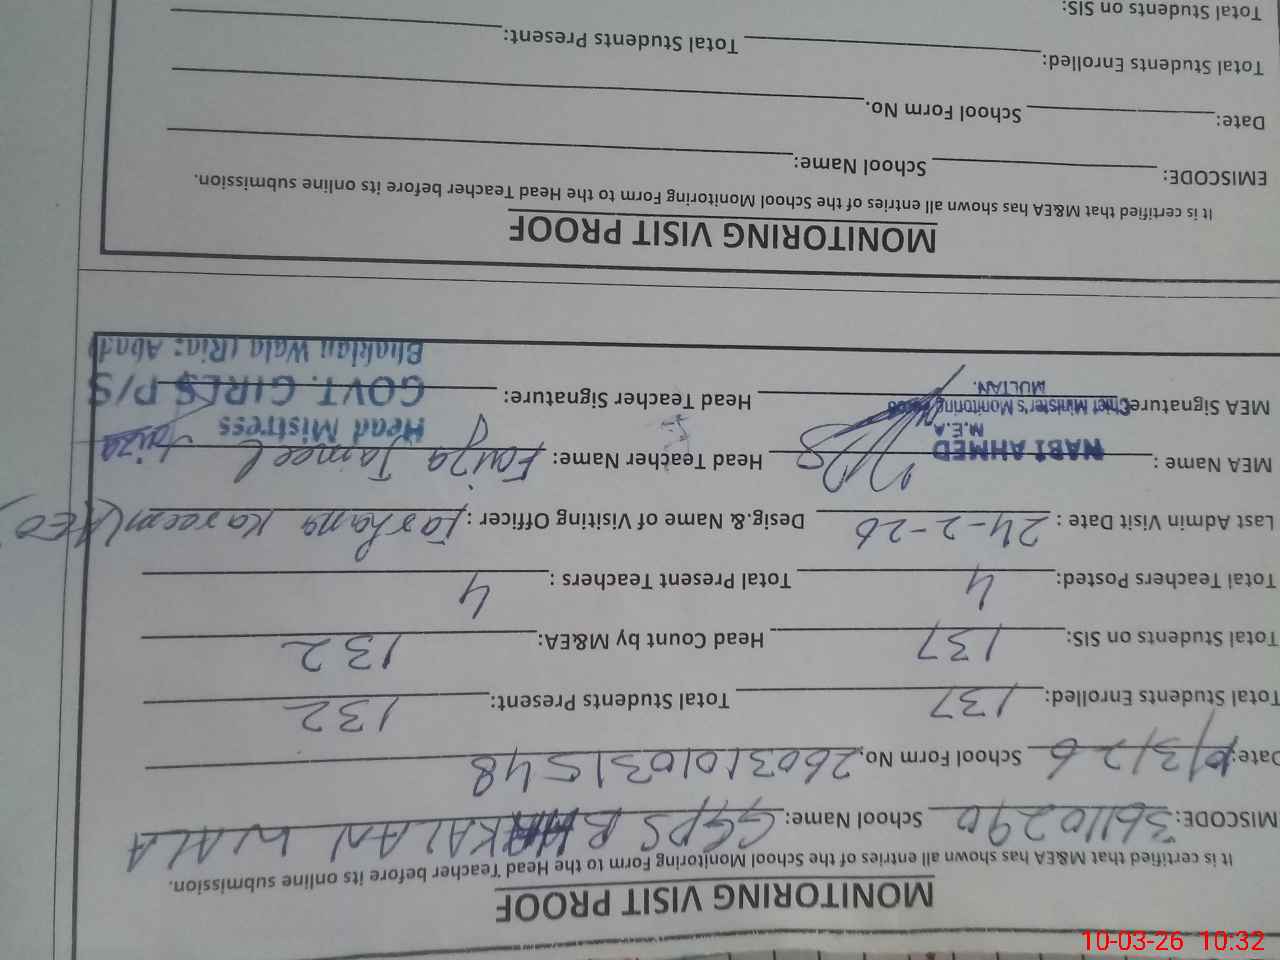 MONITORING VISIT PROOF
It is certified that M&EA has shown all entries of the School Monitoring Form to the Head Teacher before its online submission.
MISCODE: 36110290 School Name: GGPS KALAN WALA
Date: 10/3/26 School Form No. 2603101031548
Total Students Enrolled: 137 Total Students Present: 132
Total Students on SIS: 137 Head Count by M&EA: 132
Total Teachers Posted: 4 Total Present Teachers : 4
Last Admin Visit Date : 24-2-26 Desig.&. Name of Visiting Officer : Farhana Kareem (AEO)
MEA Name : NABI AHMED M.E.A Head Teacher Name: Fouzia Jameel
MEA Signature: Chief Minister's Monitoring MULTAN. Head Teacher Signature:
Head Mistress
GOVT. GIRLS P/S
Bhaklan Wala (Ria: Abad)
MONITORING VISIT PROOF
It is certified that M&EA has shown all entries of the School Monitoring Form to the Head Teacher before its online submission.
EMISCODE: School Name:
Date: School Form No.
Total Students Enrolled: Total Students Present:
Total Students on SIS:
10-03-26 10:32